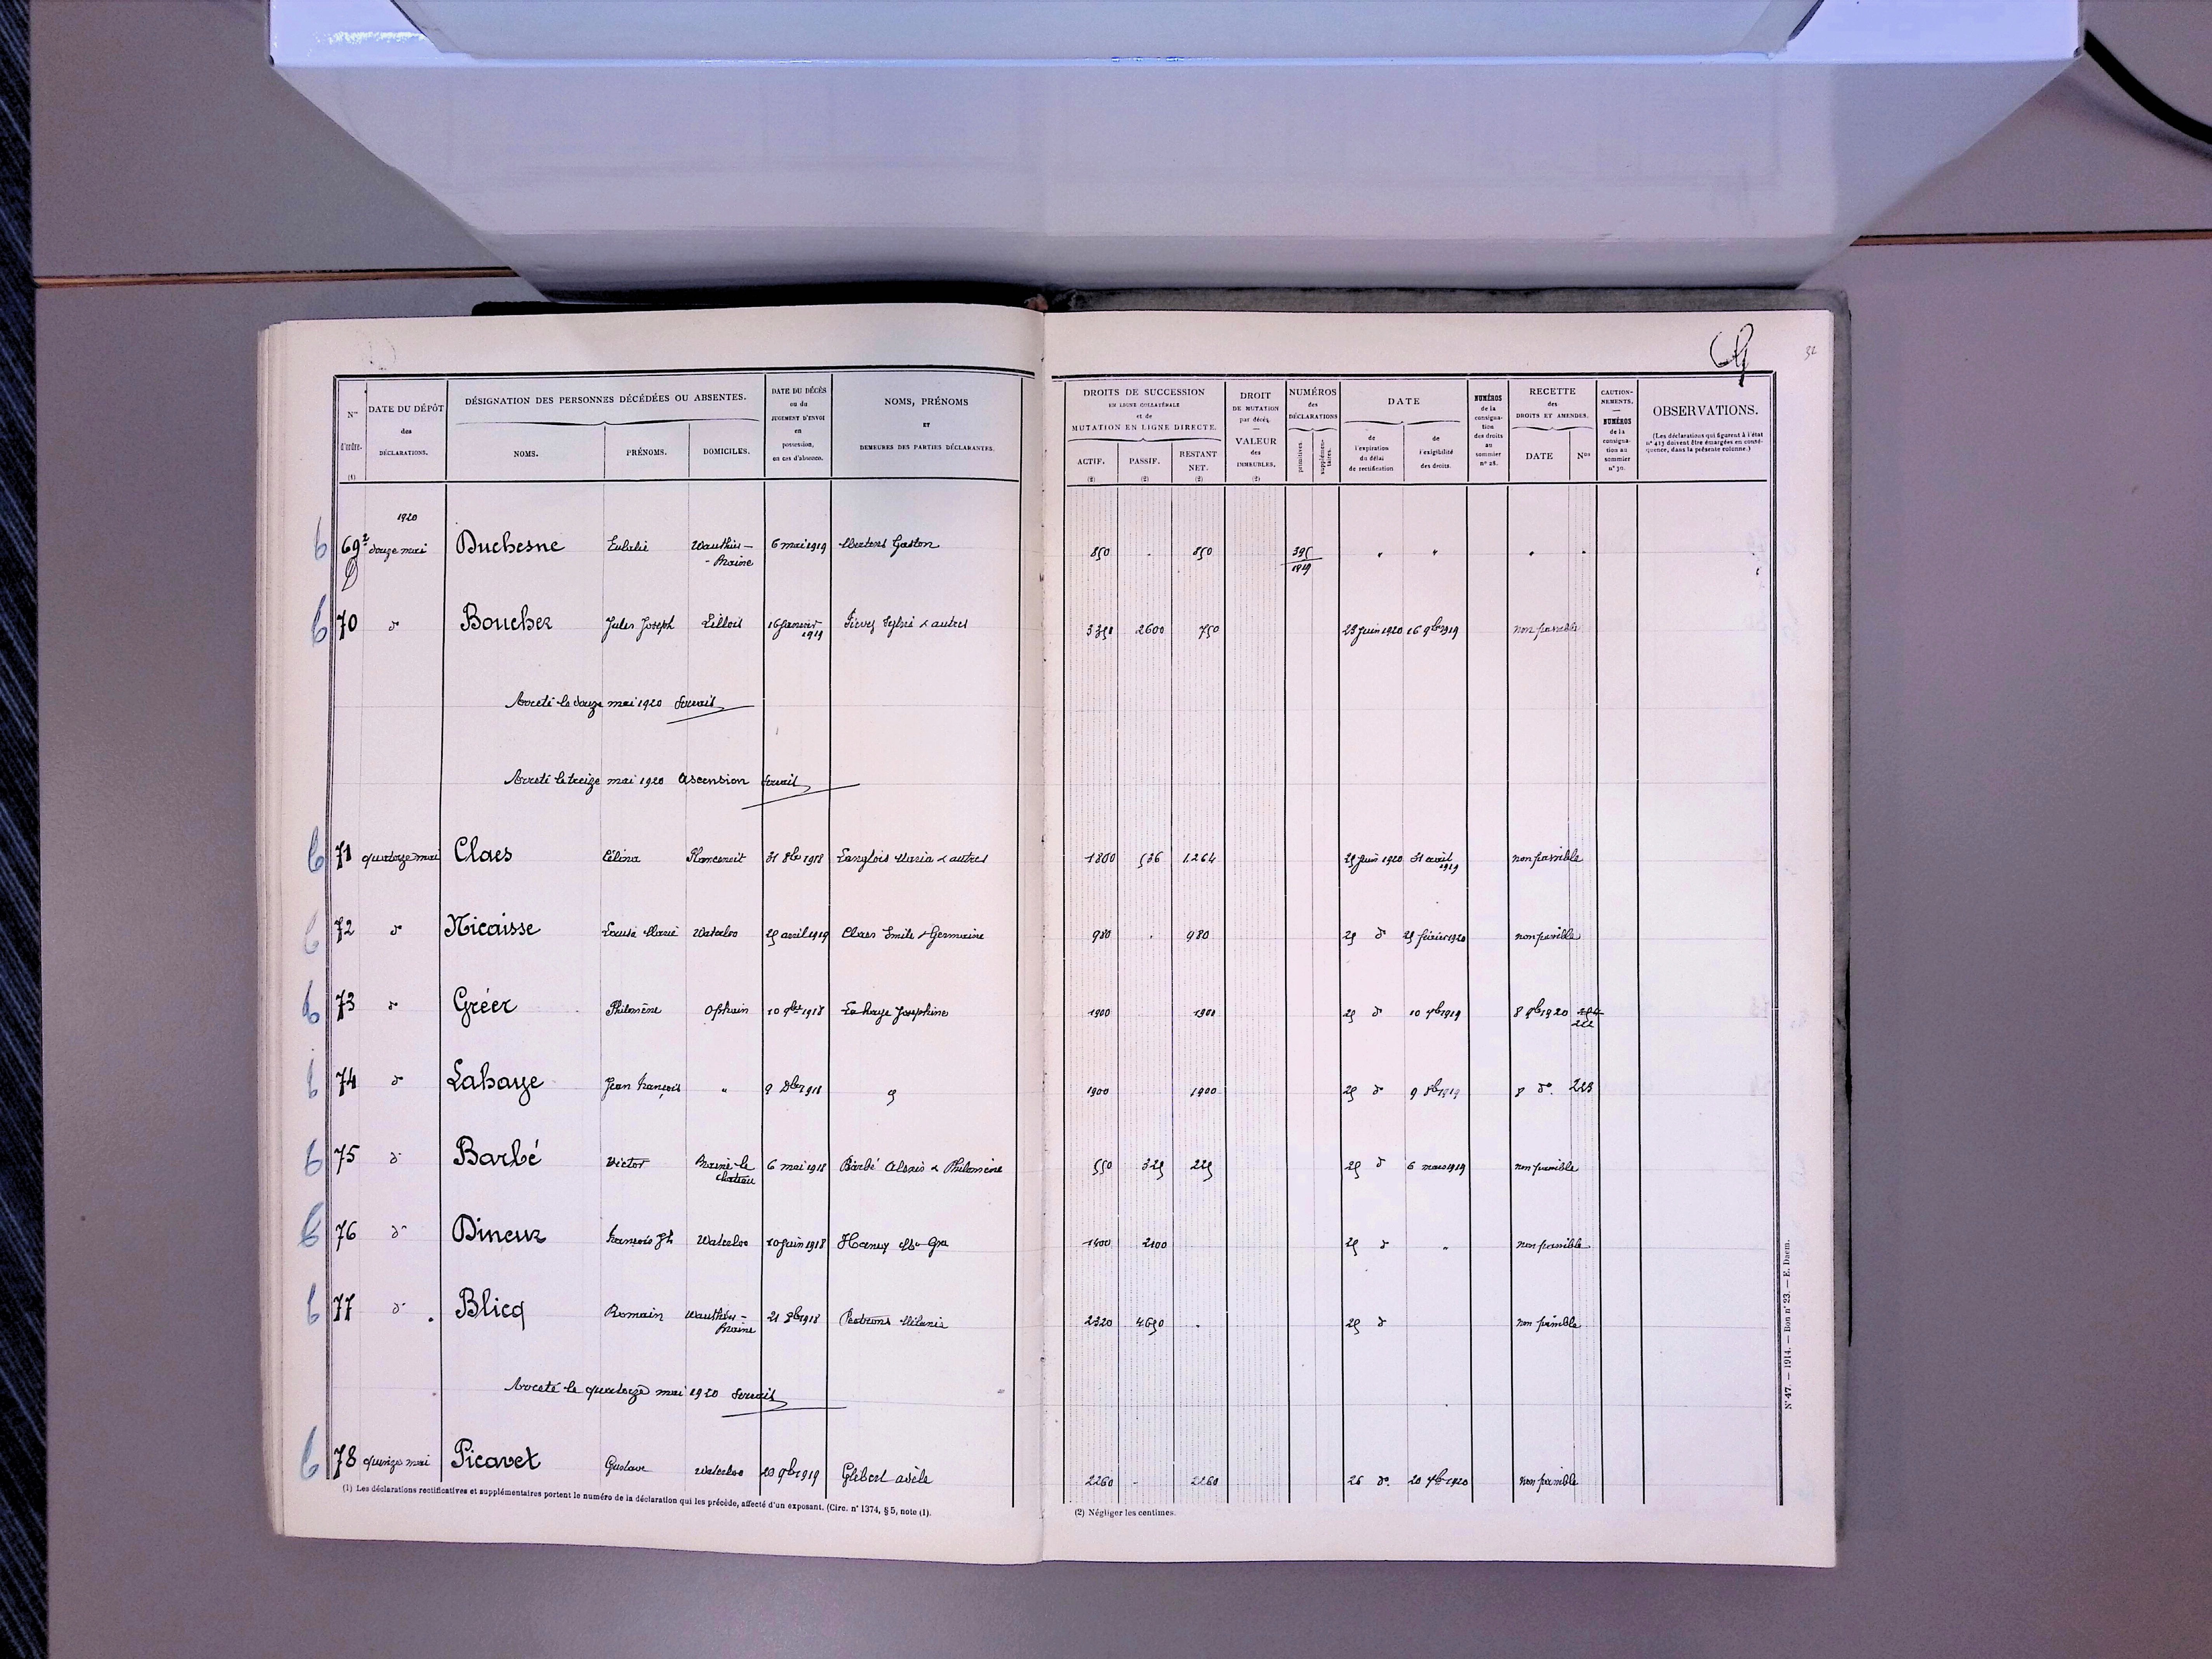 32
Nos d'ordre. (1)
DATE DU DÉPÔT des DÉCLARATIONS.
DÉSIGNATION DES PERSONNES DÉCÉDÉES OU ABSENTES.
NOMS. PRÉNOMS. DOMICILES.
DATE DU DÉCÈS ou du JUGEMENT D'ENVOI en possession, en cas d'absence.
NOMS, PRÉNOMS ET DEMEURES DES PARTIES DÉCLARANTES.
DROITS DE SUCCESSION EN LIGNE COLLATÉRALE et de MUTATION EN LIGNE DIRECTE.
ACTIF. (2) PASSIF. (2) RESTANT NET. (2)
DROIT DE MUTATION par décès. — VALEUR des IMMEUBLES. (2)
NUMÉROS des DÉCLARATIONS
primitives. supplémentaires.
DATE
de l'expiration du délai de rectification. de l'exigibilité des droits.
NUMÉROS de la consignation des droits au sommier n° 28.
RECETTE des DROITS ET AMENDES.
DATE Nos
CAUTIONNEMENTS. — NUMÉROS de la consignation au sommier n° 30.
OBSERVATIONS.
(Les déclarations qui figurent à l'état n° 413 doivent être émargées en conséquence, dans la présente colonne.)
1920
69 douze mai Duchesne Eulalie Wauthier-Braine 6 mai 1919 Mertens Gaston 850 . 850 395/1919 " " " "
70 do Boucher Jules Joseph Lillois 16 janvier 1919 & autres 3350 2600 750 23 juin 1920 16 9bre 1919 non passible
Arrêté le douze mai 1920 Servais
Arrêté le treize mai 1920 Ascension Servais
71 quatorze mai Claes Célina Plancenoit 31 8bre 1918 Langlois Maria & autres 1800 536 1264 25 juin 1920 31 avril 1919 non passible
72 do Nicaisse Louise Marie Waterloo 25 avril 1919 Claes Emile & Germaine 980 . 980 25 do 25 février 1920 non passible
73 do Gréer Philomène Ophain 10 9bre 1918 Lahaye Joséphine 1900 1900 25 do 10 7bre 1919 8 9bre 1920 222
74 do Lahaye Jean François " 9 Dbre 1918 1900 1900 25 do 9 8bre 1919 8 do. 223
75 do Barbé Victor Braine-le-château 6 mai 1918 Barbé Alexis & Philomène 550 325 225 25 do 6 mars 1919 non passible
76 do Dineur François Jh Waterloo 10 juin 1918 1400 2100 25 do " non passible
77 do Blicq Romain Wauthier-Braine 21 8bre 1918 Mélanie 2320 4690 . 25 do non passible
Arrêté le quatorze mai 1920 Servais
78 quinze mai Picavet Gustave Waterloo 20 9bre 1919 Glibert Adèle 2260 - 2260 26 do. 20 7bre 1920 non passible
(1) Les déclarations rectificatives et supplémentaires portent le numéro de la déclaration qui les précède, affecté d'un exposant. (Circ. n° 1374, § 5, note (1).
(2) Négliger les centimes.
N° 47. — 1914. — Bon n° 23. — E. Daem.